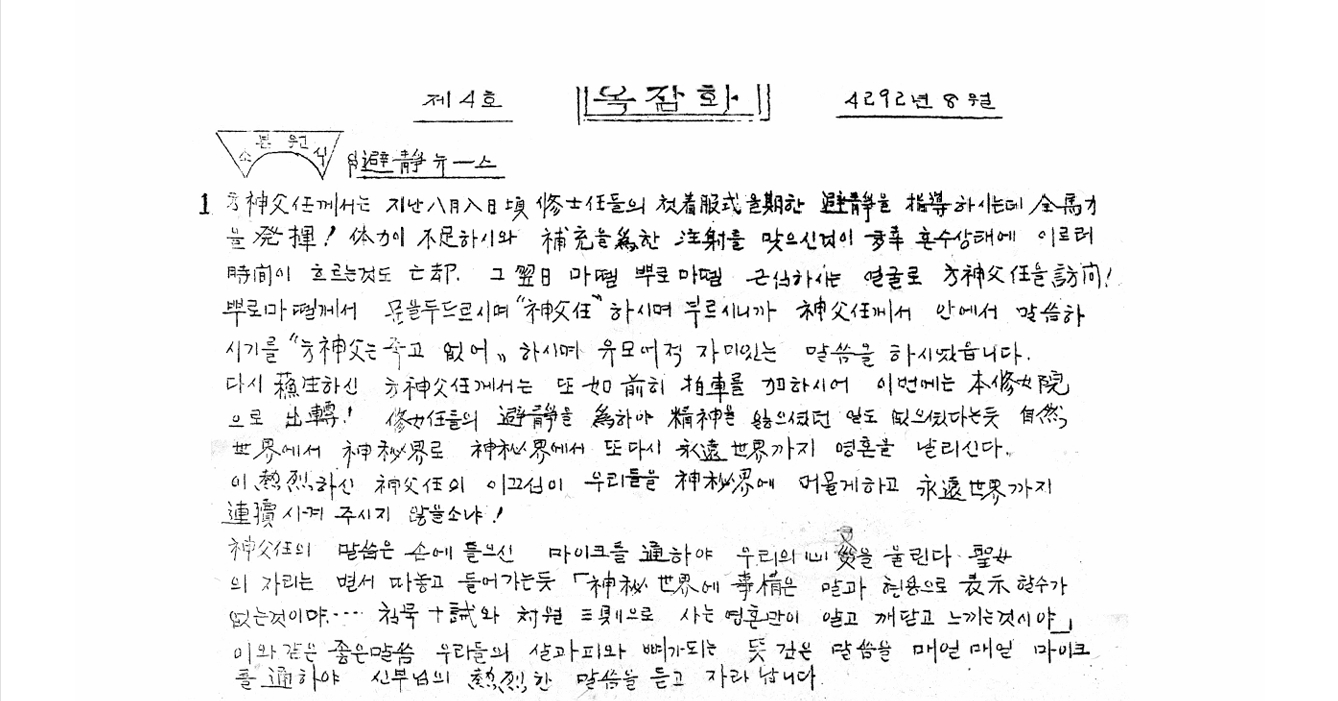 제4호
옥잠화
4292년 8월
본원 소식
避靜뉴ー스
1 方神父任께서는 지난八月八日頃 修士任들의 첫着服式을期한 避靜을 指導하시는데 全馬力
을 発揮! 体力이 不足하시와 補充을爲한 注射를 맞으신것이 혼수상태에 이르러
時間이 흐르는것도 亡却. 그翌日 마펠 뿌로마펠 근심하시는 얼굴로 方神父任을訪问!
뿌로마펠께서 문을두드르시며 "神父任" 하시며 부르시니까 神父任께서 안에서 말씀하
시기를 "方神父는 죽고 없어" 하시며 유모어적 자미있는 말씀을 하시었읍니다.
다시 하신 方神父任께서는 또 如前히 拍車를 加하시어 이번에는 本修女院
으로 出轉! 修女任들의 避靜을 爲하야 精神을 잃으셨던 일도 없으셨다는듯 自然
世界에서 神秘界로 神秘界에서 또다시 永遠世界까지 영혼을 날리신다.
이熱烈하신 神父任의 이끄심이 우리들을 神秘界에 머물게하고 永遠世界까지
連續시켜 주시지 않을소냐!
神父任의 말씀은 손에 들으신 마이크를 通하야 우리의心 을 울린다 聖女
의 자리는 면서 따놓고 들어가는듯 「神秘世界에 事情은 말과 형용으로 表示할수가
없는것이야.... 침묵十誡와 三則으로 사는 영혼만이 알고 깨달고 느끼는것이야」
이와같은 좋은말씀 우리들의 살과피와 뼈가되는 뜻깊은 말씀을 매일매일 마이크
를 通하야 신부님의 熱烈한 말씀을 듣고 자라납니다.